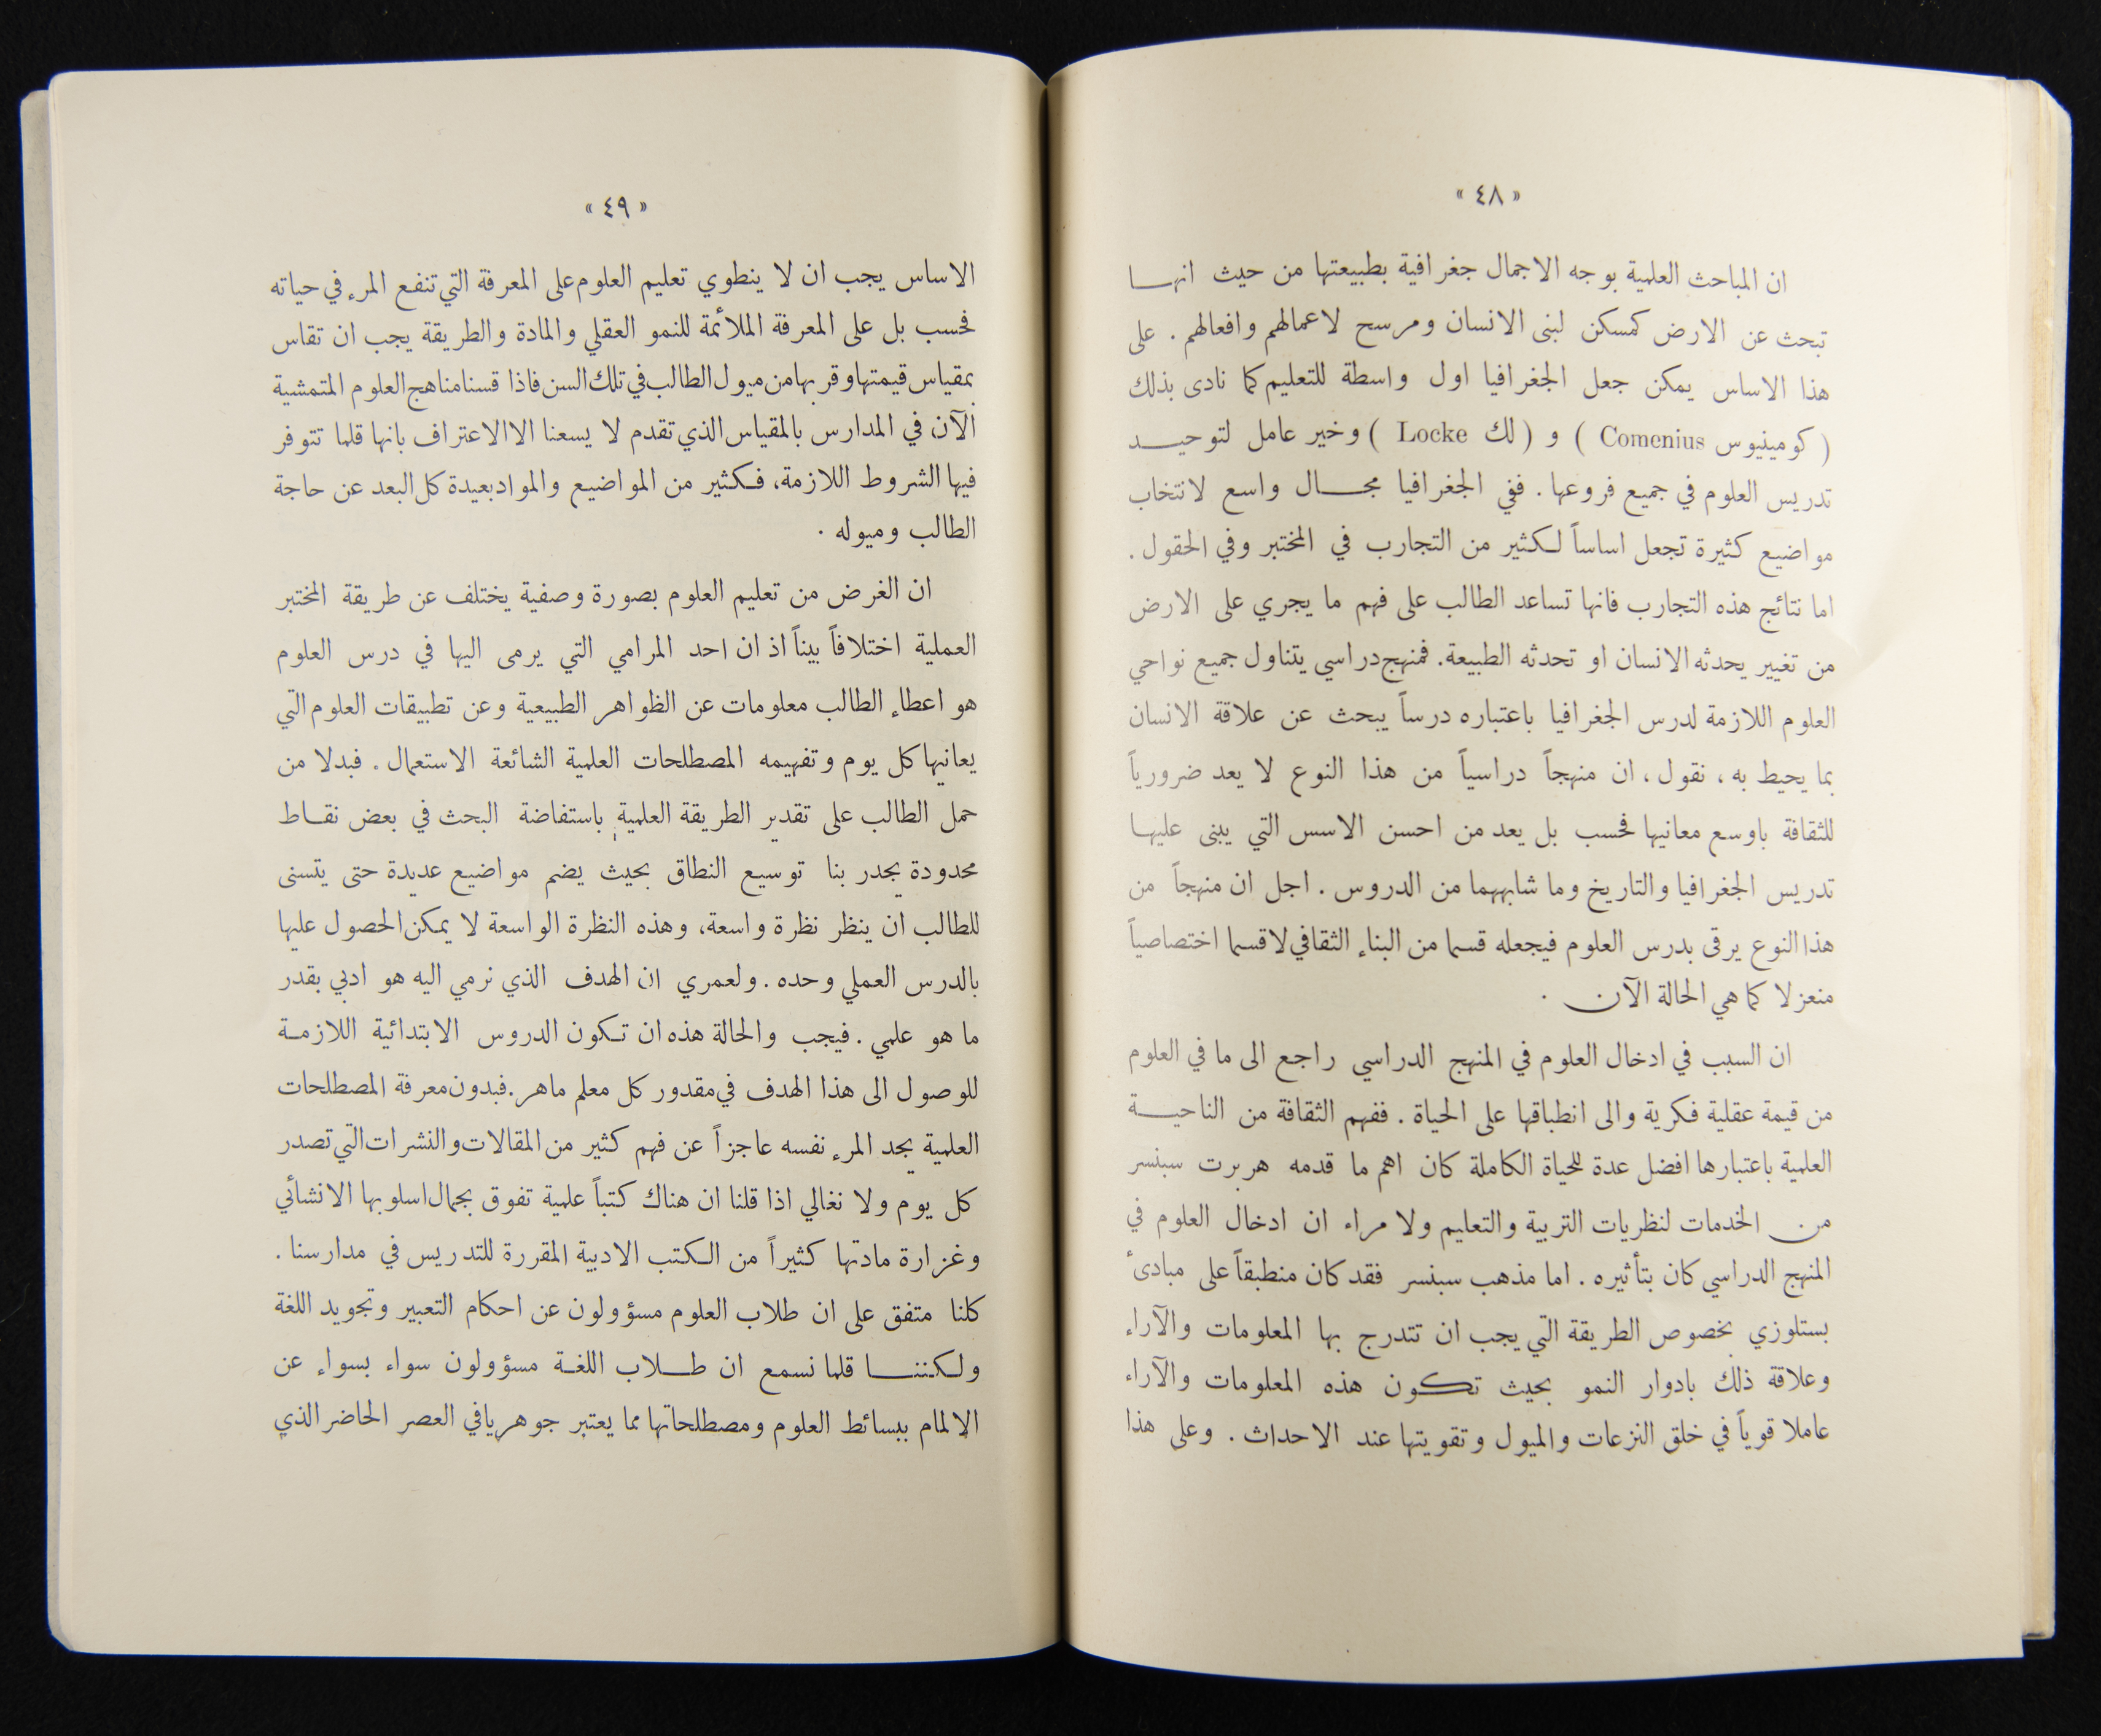 « ٤٨ »
ان المباحث العلمية بوجه الاجمال جغرافية بطبيعتها من حيث انهـــا
تبحث عن الارض كمسكن لبنى الانسان ومرسح لاعمالهم وافعالهم . على
هذا الاساس يمكن جعل الجغرافيا اول واسطة للتعليم كما نادى بذلك
( كومينيوس Comenius ) و ( لك Locke ) وخير عامل لتوحيـــد
تدريس العلوم في جميع فروعها . ففي الجغرافيا مجـــال واسع لانتخاب
مواضيع كثيرة تجعل اساساً لكثير من التجارب في المختبر وفي الحقول .
اما نتائج هذه التجارب فانها تساعد الطالب على فهم ما يجري على الارض
من تغيير يحدثه الانسان او تحدثه الطبيعة. فمنهج دراسي يتناول جميع نواحي
العلوم اللازمة لدرس الجغرافيا باعتباره درساً يبحث عن علاقة الانسان
بما يحيط به ، نقول ، ان منهجاً دراسياً من هذا النوع لا يعد ضرورياً
للثقافة باوسع معانيها فحسب بل يعد من احسن الاسس التي يبنى عليهـا
تدريس الجغرافيا والتاريخ وما شابههما من الدروس . اجل ان منهجاً من
هذا النوع يرقى بدرس العلوم فيجعله قسما من البناء الثقافي لا قسما اختصاصياً
منعزلا كما هي الحالة الآن .
ان السبب في ادخال العلوم في المنهج الدراسي راجع الى ما في العلوم
من قيمة عقلية فكرية والى انطباقها على الحياة . ففهم الثقافة من الناحيـــة
العلمية باعتبارها افضل عدة للحياة الكاملة كان اهم ما قدمه هربرت سبنسر
من الخدمات لنظريات التربية والتعليم ولا مراء ان ادخال العلوم في
المنهج الدراسي كان بتأثيره . اما مذهب سبنسر فقد كان منطبقاً على مبادىٔ
بستلوزي بخصوص الطريقة التي يجب ان تتدرج بها المعلومات والآراء
وعلاقة ذلك بادوار النمو بحيث تكـون هذه المعلومات والآراء
عاملا قوياً في خلق النزعات والميول وتقويتها عند الاحداث . وعلى هذا
« ٤٩ »
الاساس يجب ان لا ينطوي تعليم العلوم على المعرفة التي تنفع المرء في حياته
فحسب بل على المعرفة الملائمة للنمو العقلي والمادة والطريقة يجب ان تقاس
بمقياس قيمتها وقربها من ميول الطالب في تلك السن فاذا قسنا مناهج العلوم المتمشية
الآن في المدارس بالمقياس الذي تقدم لا يسعنا الا الاعتراف بانها قلما تتوفر
فيها الشروط اللازمة، فكثير من المواضيع والمواد بعيدة كل البعد عن حاجة
الطالب وميوله .
ان الغرض من تعليم العلوم بصورة وصفية يختلف عن طريقة المختبر
العملية اختلافاً بيناً اذ ان احد المرامي التي يرمى اليها في درس العلوم
هو اعطاء الطالب معلومات عن الظواهر الطبيعية وعن تطبيقات العلوم التي
يعانيها كل يوم وتفهيمه المصطلحات العلمية الشائعة الاستعمال . فبدلا من
حمل الطالب على تقدير الطريقة العلمية باستفاضة البحث في بعض نقـاط
محدودة يجدر بنا توسيع النطاق بحيث يضم مواضيع عديدة حتى يتسنى
للطالب ان ينظر نظرة واسعة، وهذه النظرة الواسعة لا يمكن الحصول عليها
بالدرس العملي وحده . ولعمري ان الهدف الذي نرمي اليه هو ادبي بقدر
ما هو علمي . فيجب والحالة هذه ان تكون الدروس الابتدائية اللازمـة
للوصول الى هذا الهدف في مقدور كل معلم ماهر . فبدون معرفة المصطلحات
العلمية يجد المرء نفسه عاجزاً عن فهم كثير من المقالات والنشرات التي تصدر
كل يوم ولا نغالي اذا قلنا ان هناك كتباً علمية تفوق بجمال اسلوبها الانشائي
وغزارة مادتها كثيراً من الكتب الادبية المقررة للتدريس في مدارسنا .
كلنا متفق على ان طلاب العلوم مسؤولون عن احكام التعبير وتجويد اللغة
ولكننـــا قلما نسمع ان طـــلاب اللغـة مسؤولون سواء بسواء عن
الالمام ببسائط العلوم ومصطلحاتها مما يعتبر جوهريا في العصر الحاضر الذي